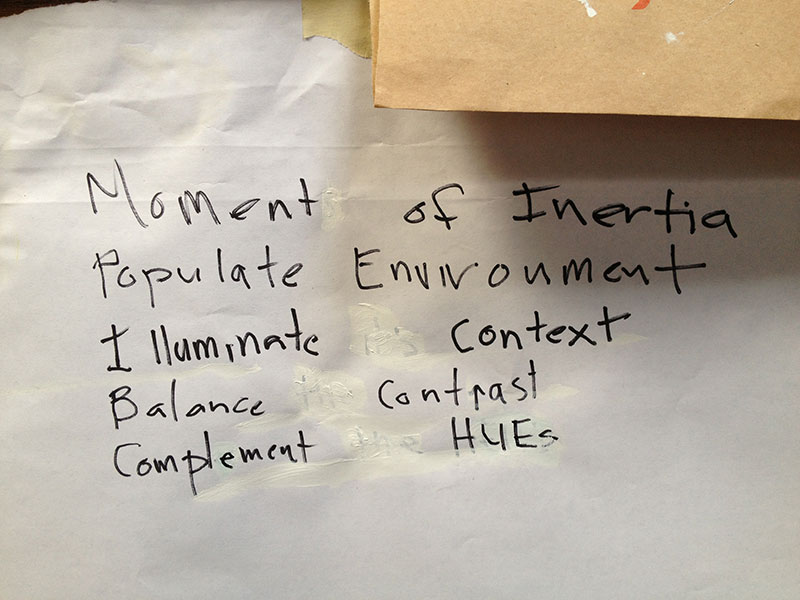 Moment of Inertia
Populate Envirounment
Illuminate the Context
Balance the Contrast
Complement the HUEs